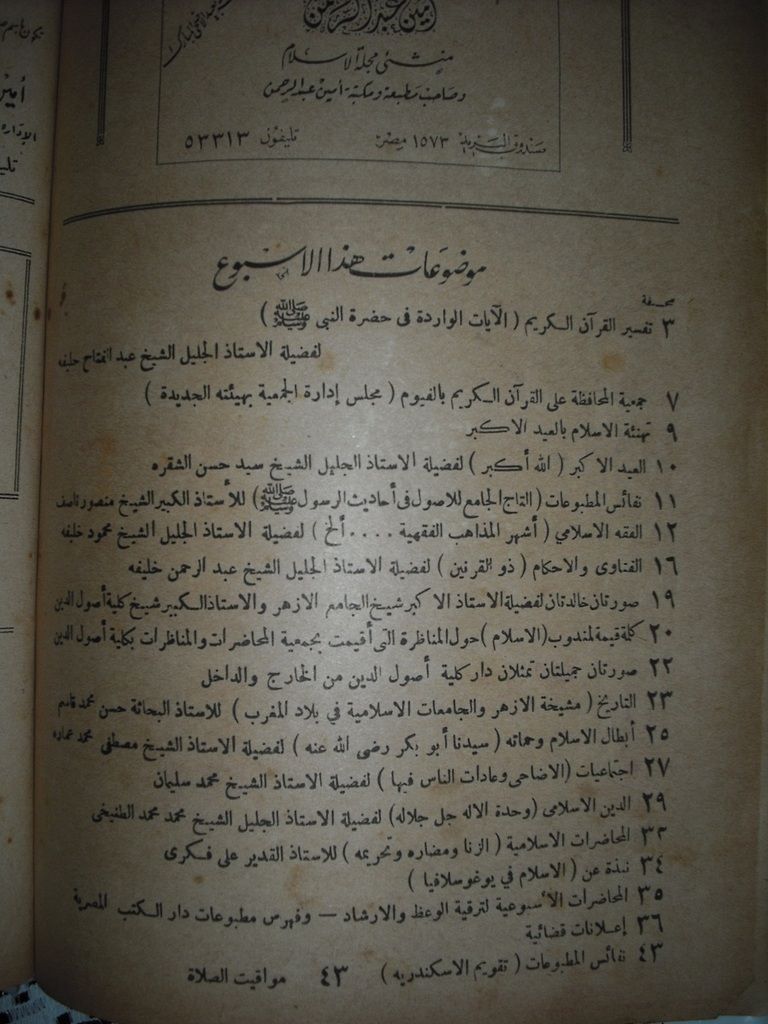 أمين عبد الرحمن
منشئ مجلة الاسلام
وصاحب مطبعة ومكتبة أمين عبد الرحمن
صندوق البريد ١٥٧٣ مصر تليفون ٥٣٣١٣
موضوعات هذا الاسبوع
صحيفة
٣ تفسير القرآن الكريم ( الآيات الواردة فى حضرة النبى ﷺ )
لفضيلة الاستاذ الجليل الشيخ عبد الفتاح خليفه
٧ جمعية المحافظة على القرآن الكريم بالفيوم ( مجلس إدارة الجمعية بهيئته الجديدة )
٩ تهنئة الاسلام بالعيد الاكبر
١٠ العيد الاكبر ( الله أكبر ) لفضيلة الاستاذ الجليل الشيخ سيد حسن الشقره
١١ نفائس المطبوعات ( التاج الجامع للاصول فى أحاديث الرسول ﷺ ) للأستاذ الكبير الشيخ منصور ناصف
١٢ الفقه الاسلامي ( أشهر المذاهب الفقهية .... ألخ ) لفضيلة الاستاذ الجليل الشيخ محمود خليفه
١٦ الفتاوى والاحكام ( ذو القرنين ) لفضيلة الاستاذ الجليل الشيخ عبد الرحمن خليفه
١٩ صورتان خالدتان لفضيلة الاستاذ الاكبر شيخ الجامع الازهر والاستاذ الكبير شيخ كلية أصول الدين
٢٠ كلمة قيمة لمندوب (الاسلام) حول المناظرة التى أقيمت بجمعية المحاضرات والمناظرات بكلية أصول الدين
٢٢ صورتان جميلتان تمثلان دار كلية أصول الدين من الخارج والداخل
٢٣ التاريخ ( مشيخة الازهر والجامعات الاسلامية في بلاد المغرب ) للاستاذ البحاثة حسن محمد قاسم
٢٥ أبطال الاسلام وحماته ( سيدنا أبو بكر رضى الله عنه ) لفضيلة الاستاذ الشيخ مصطفى محمد عماره
٢٧ اجتماعيات (الاضاحى وعادات الناس فيها ) لفضيلة الاستاذ الشيخ محمد سليمان
٢٩ الدين الاسلامى (وحدة الاله جل جلاله) لفضيلة الاستاذ الجليل الشيخ محمد محمد الطنيخى
٣٢ المحاضرات الاسلامية ( الزنا ومضاره وتحريمه ) للاستاذ القدير على فكرى
٣٤ نبذة عن ( الاسلام في يوغوسلافيا )
٣٥ المحاضرات الأسبوعية لترقية الوعظ والارشاد — وفهرس مطبوعات دار الكتب المصرية
٣٦ إعلانات قضائية
٤٣ نفائس المطبوعات ( تقويم الاسكندريه ) ٤٣ مواقيت الصلاة